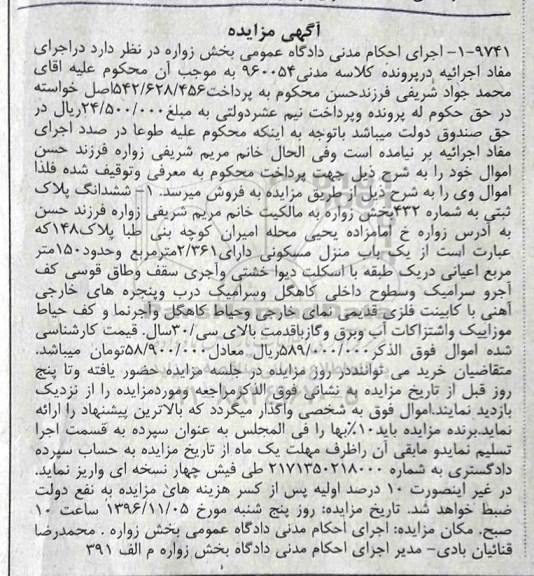 آگهی مزایده
۱-۹۷۴۱- اجرای احکام مدنی دادگاه عمومی بخش زواره در نظر دارد دراجرای
مفاد اجرائیه درپرونده کلاسه مدنی۹۶۰۰۵۴ به موجب آن محکوم علیه اقای
محمد جواد شریفی فرزندحسن محکوم به پرداخت۵۴۲/۶۲۸/۴۵۶اصل خواسته
در حق حکوم له پرونده وپرداخت نیم عشردولتی به مبلغ۲۴/۵۰۰/۰۰۰ریال در
حق صندوق دولت میباشد باتوجه به اینکه محکوم علیه طوعا در صدد اجرای
مفاد اجرائیه بر نیامده است وفی الحال خانم مریم شریفی زواره فرزند حسن
اموال خود را به شرح ذیل جهت پرداخت محکوم به معرفی وتوقیف شده فلذا
اموال وی را به شرح ذیل از طریق مزایده به فروش میرسد. ۱- ششدانگ پلاک
ثبتی به شماره ۴۳۲بخش زواره به مالکیت خانم مریم شریفی زواره فرزند حسن
به آدرس زواره خ امامزاده یحیی محله امیران کوچه بنی طبا پلاک۱۴۸که
عبارت است از یک باب منزل مسکونی دارای۲/۳۶۱مترمربع وحدود۱۵۰متر
مربع اعیانی دریک طبقه با اسکلت دیوا خشتی وآجری سقف وطاق قوسی کف
آجرو سرامیک وسطوح داخلی کاهگل وسرامیک درب وپنجره های خارجی
آهنی با کابینت فلزی قدیمی نمای خارجی وحیاط کاهگل وآجرنما و کف حیاط
موزاییک واشتراکات آب وبرق وگازباقدمت بالای سی/۳۰سال. قیمت کارشناسی
شده اموال فوق الذکر۵۸۹/۰۰۰/۰۰۰ریال معادل۵۸/۹۰۰/۰۰۰تومان میباشد.
متقاضیان خرید می تواننددر روز مزایده در جلسه مزایده حضور یافته وتا پنج
روز قبل از تاریخ مزایده به نشانی فوق الذکرمراجعه وموردمزایده را از نزدیک
بازدید نمایند.اموال فوق به شخصی واگذار میگردد که بالاترین پیشنهاد را ارائه
نماید.برنده مزایده باید۱۰٪بها را فی المجلس به عنوان سپرده به قسمت اجرا
تسلیم نمایدو مابقی آن راظرف مهلت یک ماه از تاریخ مزایده به حساب سپرده
دادگستری به شماره ۲۱۷۱۳۵۰۲۱۸۰۰۰ طی فیش چهار نسخه ای واریز نماید.
در غیر اینصورت ۱۰ درصد اولیه پس از کسر هزینه های مزایده به نفع دولت
ضبط خواهد شد. تاریخ مزایده: روز پنج شنبه مورخ ۱۳۹۶/۱۱/۰۵ ساعت ۱۰
صبح. مکان مزایده: اجرای احکام مدنی دادگاه عمومی بخش زواره . محمدرضا
قنائیان بادی- مدیر اجرای احکام مدنی دادگاه بخش زواره م الف ۳۹۱